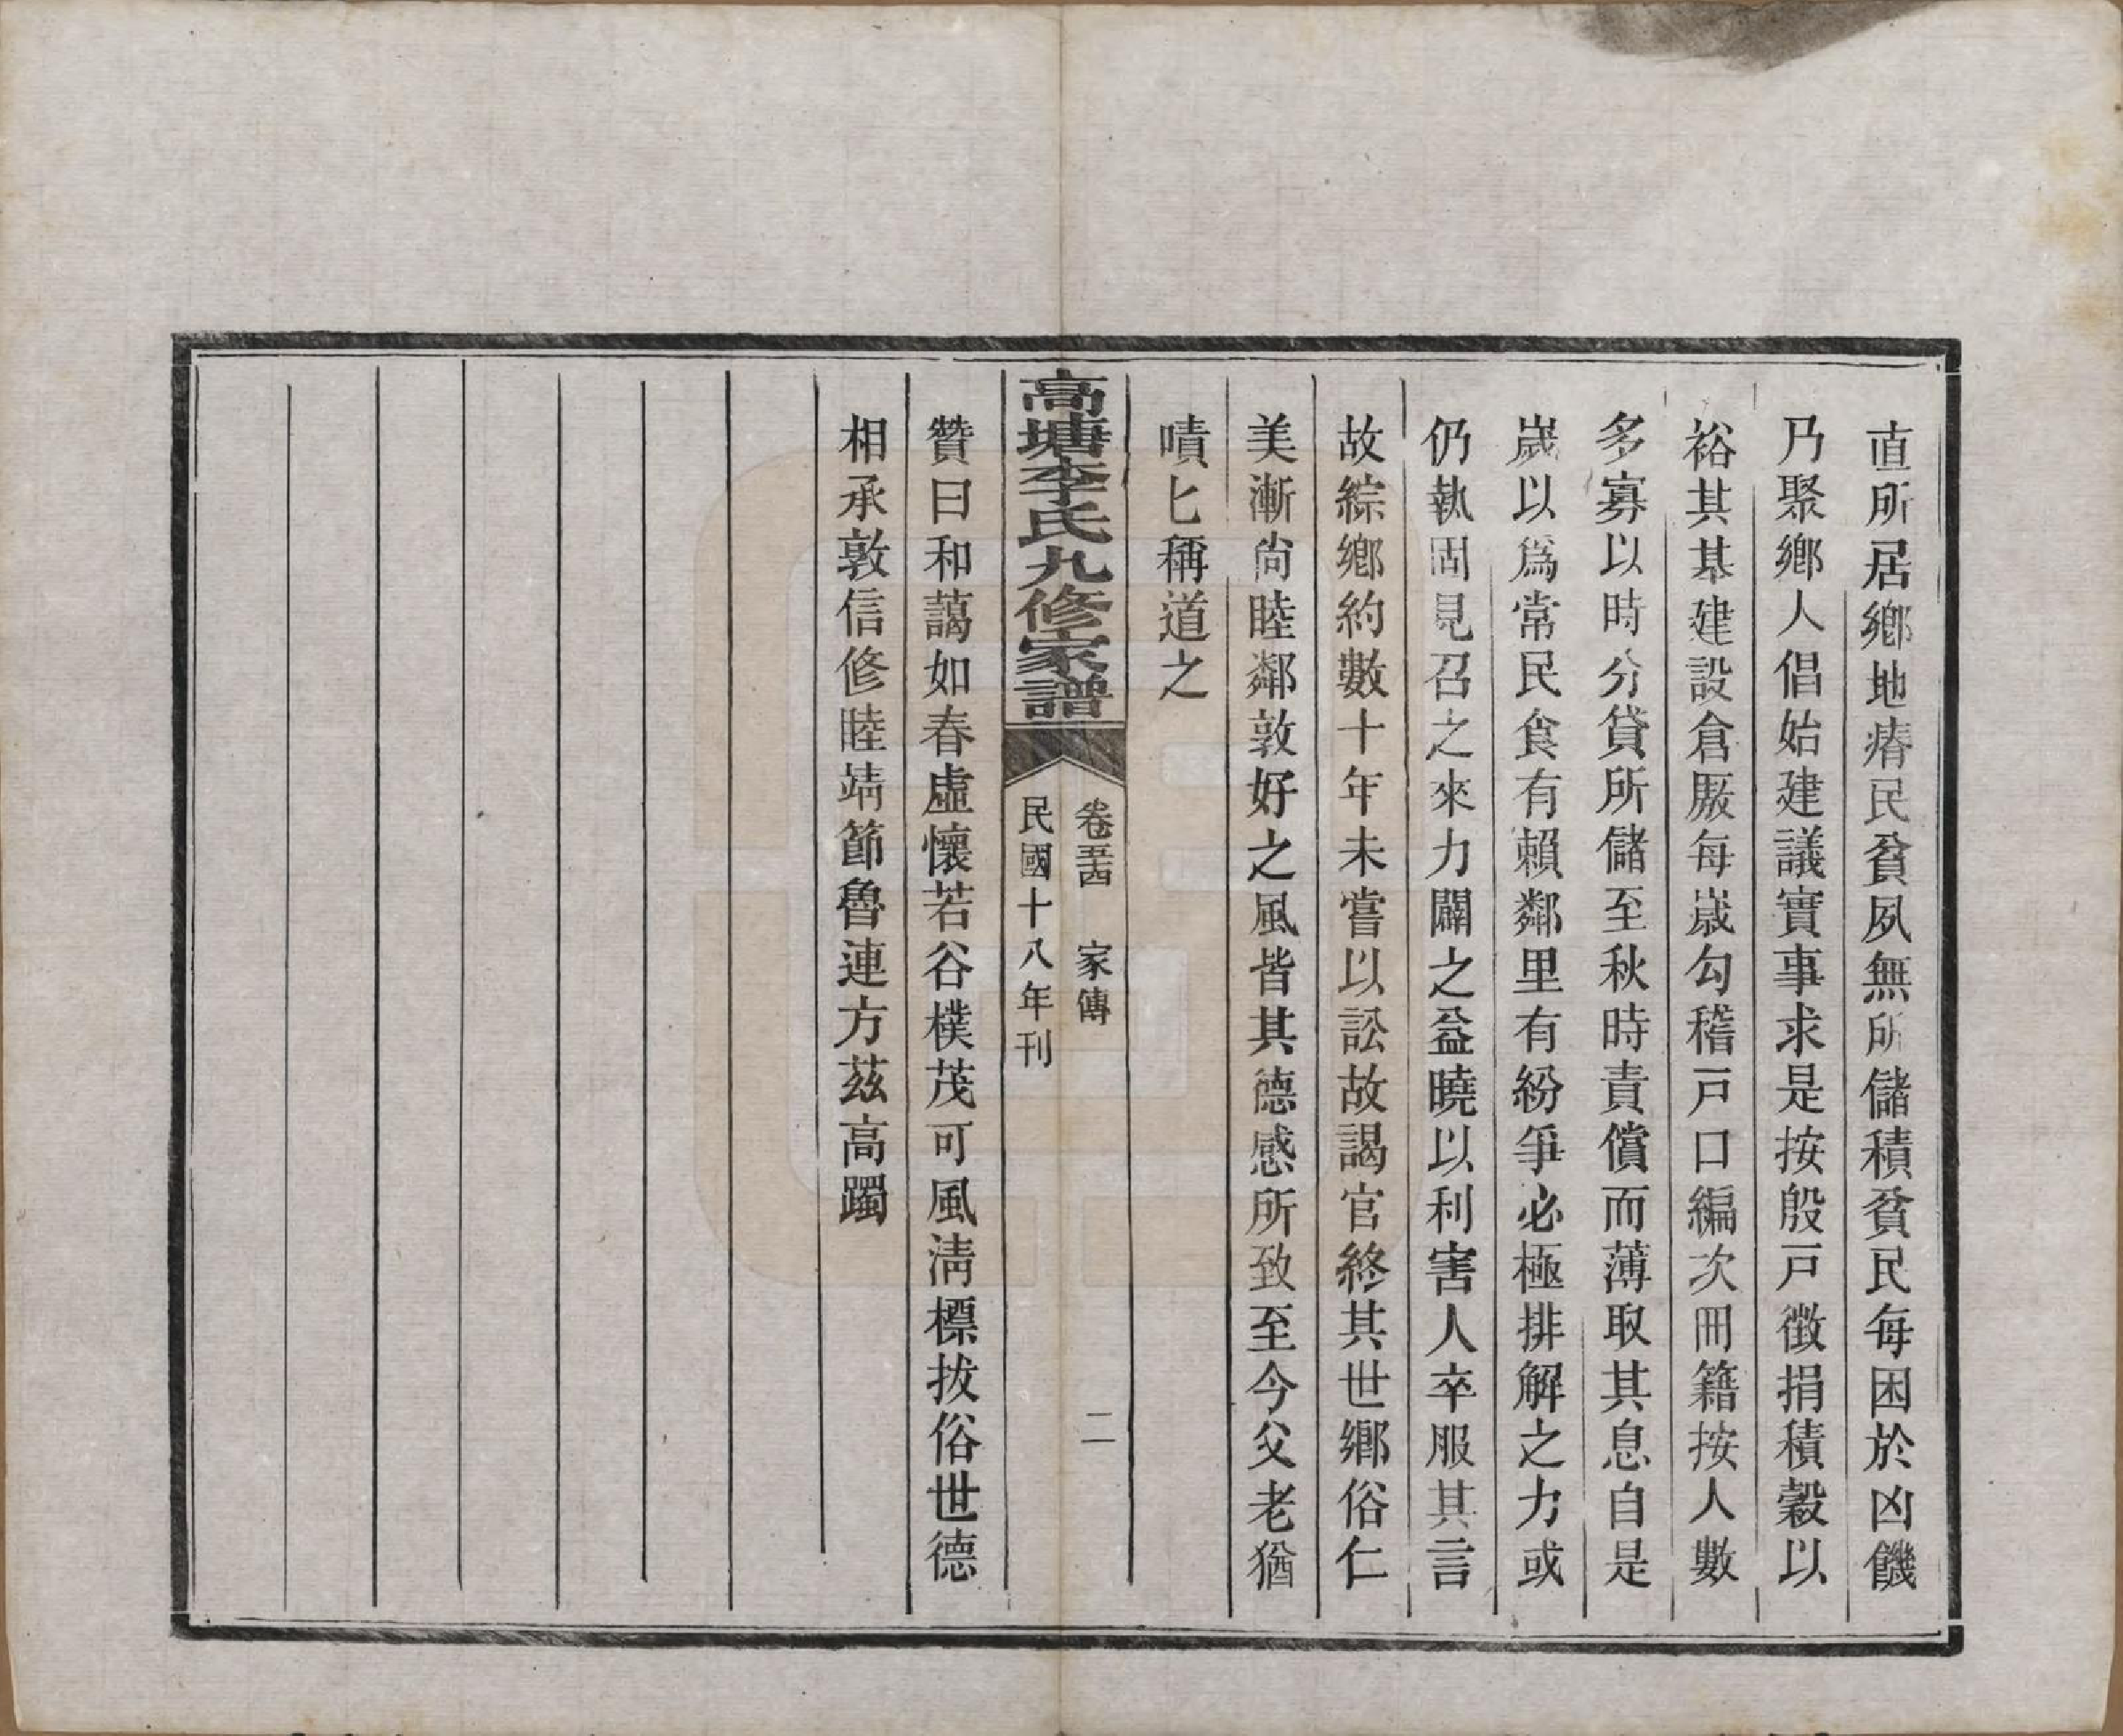 直所居鄉地瘠民貧夙無所儲積貧民每困於凶饑
乃聚鄉人倡始建議實事求是按殷戸徵捐積穀以
裕其基建設倉厫每歲勾稽戸口編次冊籍按人數
多寡以時分貸所儲至秋時責償而薄取其息自是
歲以爲常民食有賴鄰里有紛爭必極排解之力或
仍執固見召之來力闢之益曉以利害人卒服其言
故綜鄉約數十年未嘗以訟故謁官終其世鄉俗仁
美漸尙睦鄰敦好之風皆其德感所致至今父老猶
嘖匕稱道之
高塘李氏九修家譜
卷五十四 家傳
二
民國十八年刊
贊曰和藹如春虛懷若谷樸茂可風淸標拔俗世德
相承敦信修睦靖節魯連方茲高躅